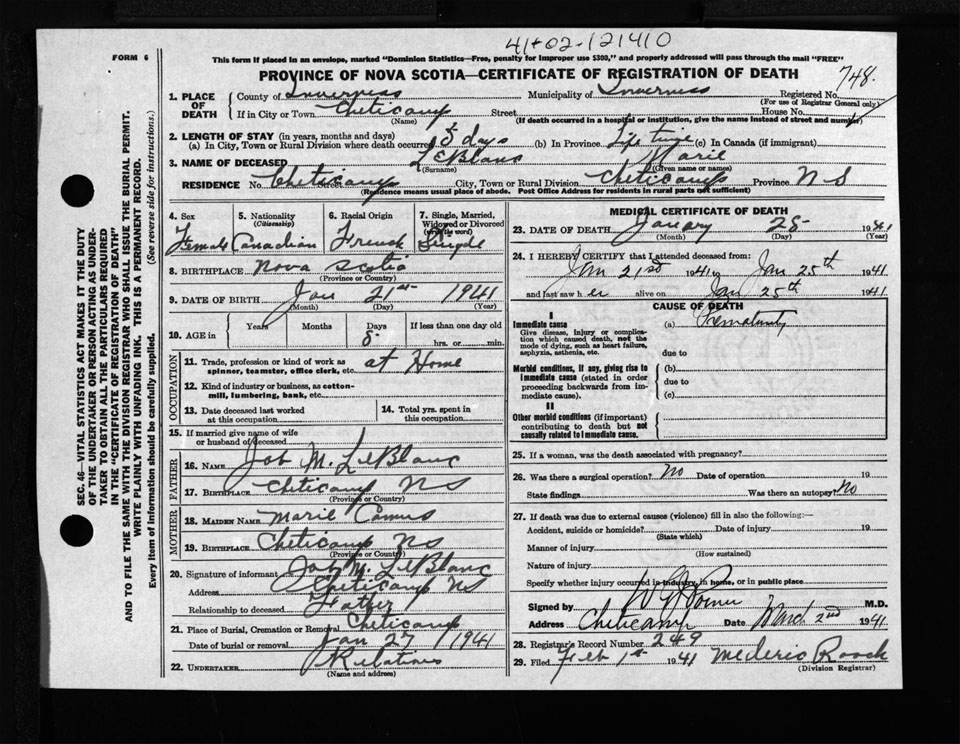 41+02-121410
FORM 6
This form if placed in an envelope, marked "Dominion Statistics—Free, penalty for improper use $300," and properly addressed will pass through the mail "FREE"
PROVINCE OF NOVA SCOTIA—CERTIFICATE OF REGISTRATION OF DEATH
748.
1. PLACE OF DEATH
County of Inverness Municipality of Inverness Registered No.
(For use of Registrar General only)
If in City or Town Cheticamp Street House No.
(Name) (If death occurred in a hospital or institution, give the name instead of street and number)
2. LENGTH OF STAY (in years, months and days)
(a) In City, Town or Rural Division where death occurred days (b) In Province Life time (c) In Canada (if immigrant)
3. NAME OF DECEASED LeBlanc Marie
(Surname) (Given name or names)
RESIDENCE No. Cheticamp Street City, Town or Rural Division Cheticamp Province N S
(Residence means usual place of abode. Post Office Address for residents in rural parts not sufficient)
4. Sex Female
5. Nationality (Citizenship) Canadian
6. Racial Origin French
7. Single, Married, Widowed or Divorced (write the word) Single
8. BIRTHPLACE Nova Scotia
(Province or Country)
9. DATE OF BIRTH Jan 21st 1941
(Month) (Day) (Year)
10. AGE in Years Months Days If less than one day old
hrs. or min.
OCCUPATION
11. Trade, profession or kind of work as spinner, teamster, office clerk, etc. at Home
12. Kind of industry or business, as cotton-mill, lumbering, bank, etc.
13. Date deceased last worked at this occupation
14. Total yrs. spent in this occupation
15. If married give name of wife or husband of deceased
FATHER
16. NAME Job M. LeBlanc
17. BIRTHPLACE Cheticamp N S
(Province or Country)
MOTHER
18. MAIDEN NAME Marie Camus
19. BIRTHPLACE Cheticamp N S
(Province or Country)
20. Signature of informant Job M. LeBlanc
Address Cheticamp N S
Relationship to deceased Father
21. Place of Burial, Cremation or Removal Cheticamp
Date of burial or removal Jan 27 1941
22. UNDERTAKER Relatives
(Name and address)
MEDICAL CERTIFICATE OF DEATH
23. DATE OF DEATH January 25 1941
(Month) (Day) (Year)
24. I HEREBY CERTIFY that I attended deceased from:
Jan 21st 1941 to Jan 25th 1941
and last saw her alive on Jan 25th 1941
CAUSE OF DEATH
I
Immediate cause
Give disease, injury or complication which caused death, not the mode of dying, such as heart failure, asphyxia, asthenia, etc.
(a) Prematurity
due to
Morbid conditions, if any, giving rise to immediate cause (stated in order proceeding backwards from immediate cause)
(b)
due to
(c)
II
Other morbid conditions (if important) contributing to death but not causally related to immediate cause.
25. If a woman, was the death associated with pregnancy?
26. Was there a surgical operation? No Date of operation 19
State findings Was there an autopsy? No
27. If death was due to external causes (violence) fill in also the following:—
Accident, suicide or homicide? Date of injury 19
(State which)
Manner of injury
(How sustained)
Nature of injury
Specify whether injury occurred in industry, in home, or in public place
Signed by M.D.
Address Cheticamp Date March 2nd 1941
28. Registrar's Record Number 249
29. Filed Feb 1st 1941 Mederic Roach
(Division Registrar)
SEC. 46—VITAL STATISTICS ACT MAKES IT THE DUTY
OF THE UNDERTAKER OR PERSON ACTING AS UNDER-
TAKER TO OBTAIN ALL THE PARTICULARS REQUIRED
IN THE "CERTIFICATE OF REGISTRATION OF DEATH"
AND TO FILE THE SAME WITH THE DIVISION REGISTRAR WHO SHALL ISSUE THE BURIAL PERMIT.
WRITE PLAINLY WITH UNFADING INK. THIS IS A PERMANENT RECORD.
Every item of information should be carefully supplied. (See reverse side for instructions.)